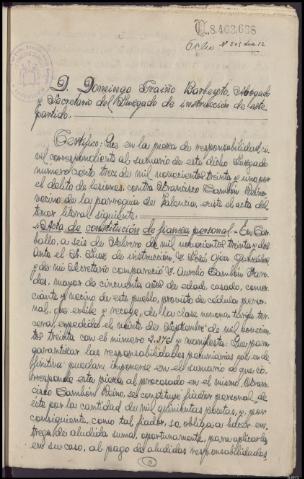 8.403.668
D. Domingo Fraiño Barbeyto, Abogado
y Secretario del Juzgado de instrucción de este
partido.
Certifico: Que en la pieza de responsabilidad ci-
vil correspondiente al sumario de este dicho Juzgado
número ciento trece de mil novecientos treinta y uno por
el delito de lesiones contra Francisco Cambón
vecino de la parroquia de existe el acta del
tenor literal siguiente.
Acta de constitución de fianza personal - En Car-
ballo, a seis de Febrero de mil novecientos treinta y dos
ante el Sr. Juez de instrucción D. José
y de mi Secretario compareció D. Aurelio Cambón
mayor de cincuenta años de edad, casado, comer-
ciante y vecino de este pueblo, provisto de cédula perso-
nal, que exhibe y recoge, de la clase novena tarifa ter-
cera, expedida el veinte de Septiembre de mil novecien-
tos treinta con el número 2.373 y manifiesta: Que para
garantizar las responsabilidades pecuniarias que en de-
finitiva puedan imponerse en el sumario de que di-
mana esta pieza al procesado en el mismo Fran-
cisco Cambón se constituye fiador personal de
éste por la cantidad de mil quinientas pesetas, y, por
consiguiente, como tal fiador, se obliga a hacer en-
trega de aludida suma, oportunamente, para aplicarla
en su caso, al pago de aludidas responsabilidades